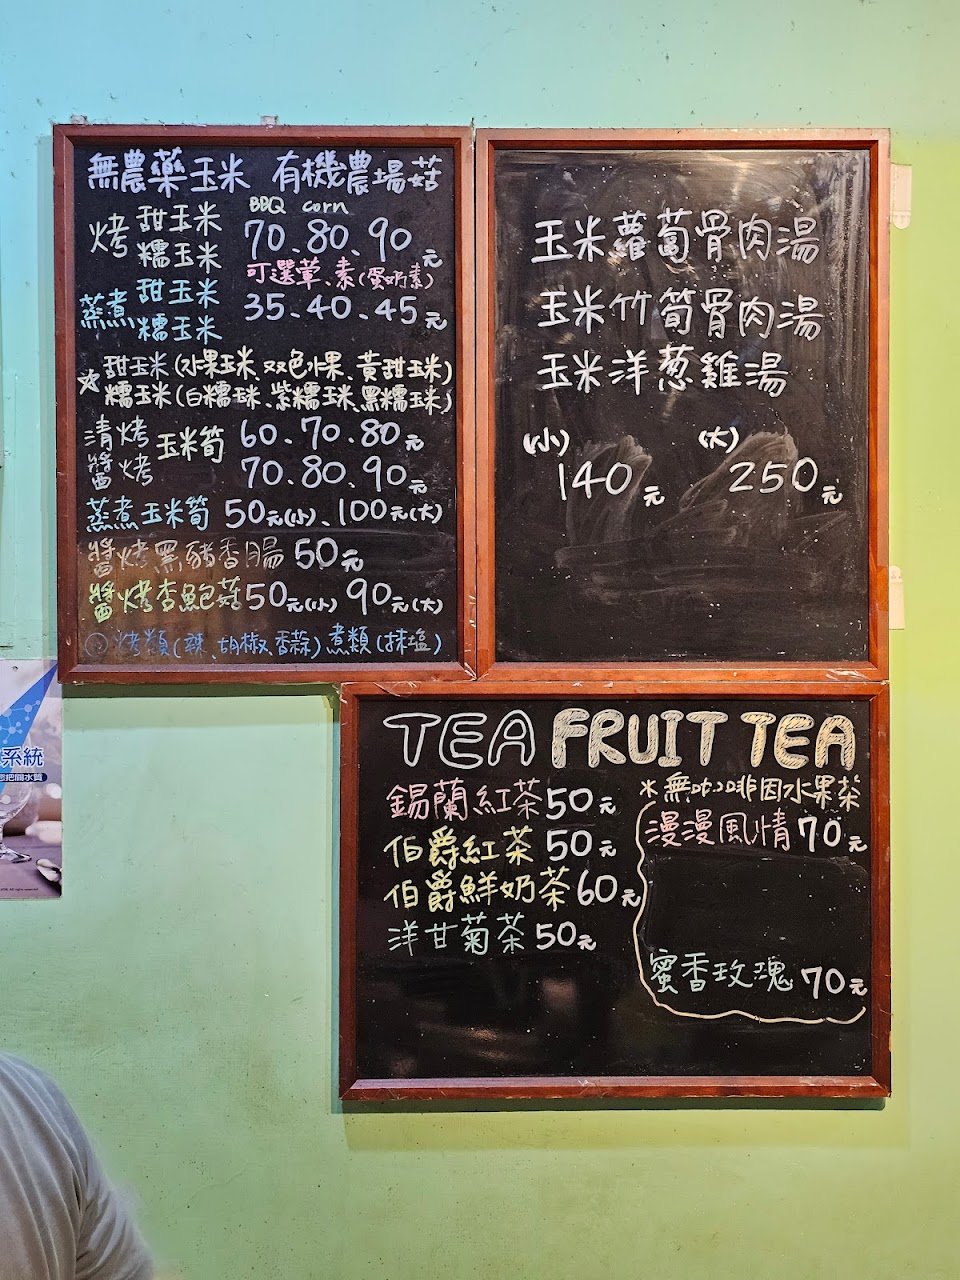 無農藥玉米 有機農場菇
BBQ corn
烤 甜玉米
糯玉米 70、80、90元
可選葷、素(蛋奶素)
蒸煮 甜玉米
糯玉米 35、40、45元
☆甜玉米(水果玉米、双色水果、黃甜玉米)
糯玉米(白糯玉米、紫糯玉米、黑糯玉米)
清烤 玉米筍 60、70、80元
醬烤 70、80、90元
蒸煮玉米筍 50元(小)、100元(大)
醬烤黑豬香腸 50元
醬烤杏鮑菇50元(小) 90元(大)
烤類(辣、胡椒、香蒜)煮類(抹塩)
玉米蘿蔔骨肉湯
玉米竹筍骨肉湯
玉米洋葱雞湯
(小) (大)
140元 250元
TEA FRUIT TEA
錫蘭紅茶50元
伯爵紅茶50元
伯爵鮮奶茶60元
洋甘菊茶50元
*無咖啡因水果茶
漫漫風情70元
蜜香玫瑰70元
系統
您把關水質